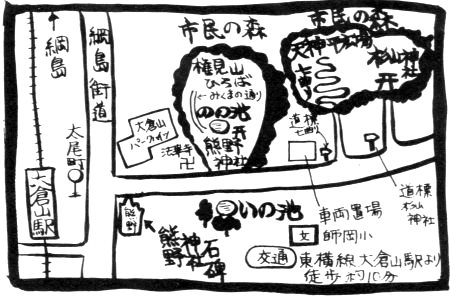 市民の森
市民の森
綱島
綱島街道
権見山
ひろば
(←みくまの通り)
のの池
熊野
神社
天神平広場
杉山神社
太尾町
大倉山
パークハイツ
法華寺
道標
大倉山駅
熊野
熊野
神社
石碑
いの池
車両置場
道標
杉山
神社
文
師岡小
交通
東横線大倉山駅より
徒歩約10分